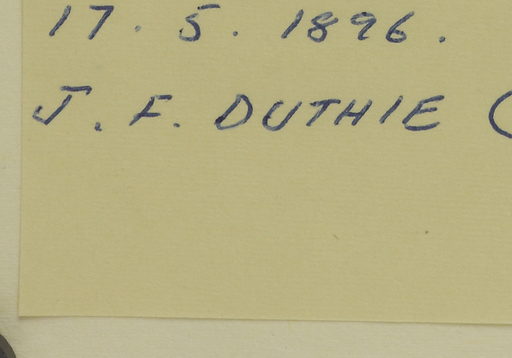 17. 5. 1896.
J. F. DUTHIE (